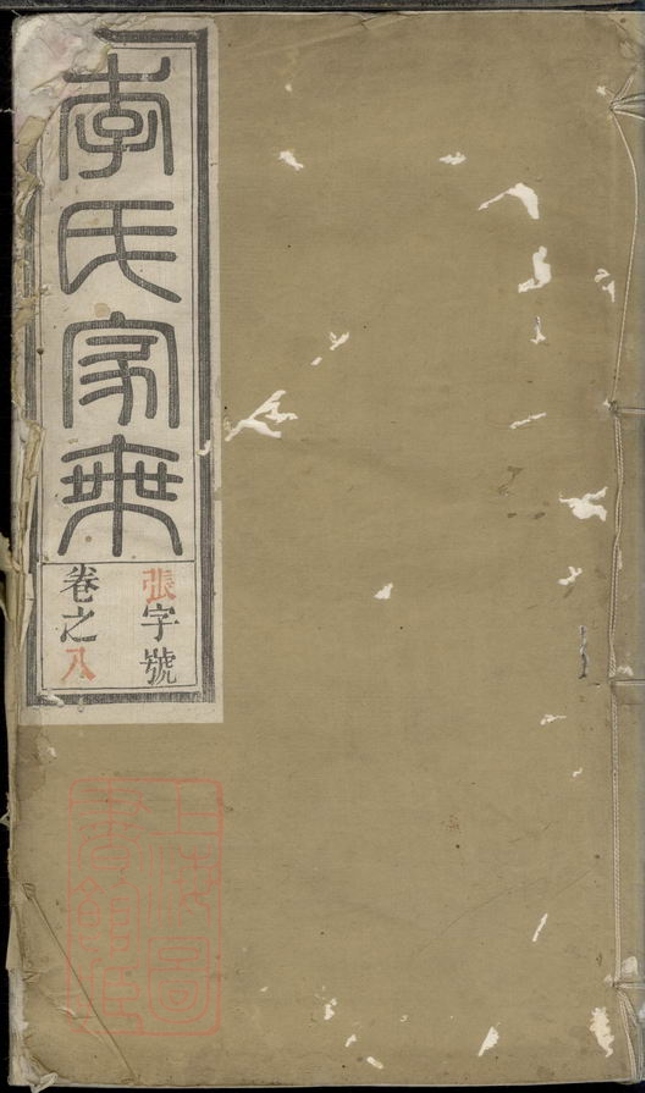 李氏家乘
張字號
卷之八
上海圖
書館藏